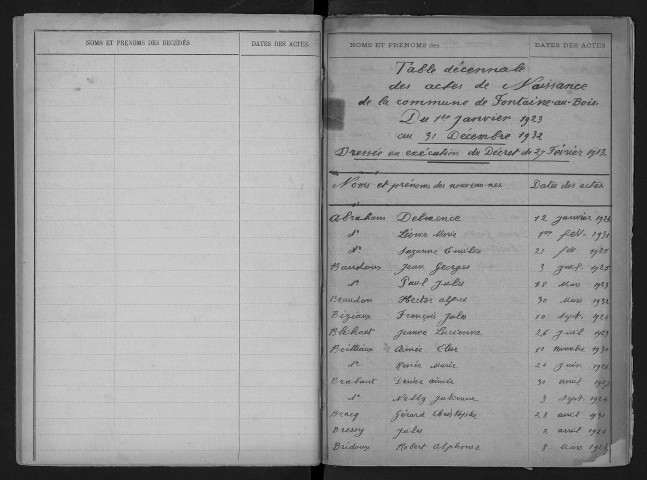 NOMS ET PRÉNOMS DES DÉCÉDÉS DATES DES ACTES.
NOMS ET PRÉNOMS des DATES DES ACTES
Table décennale
des actes de Naissance
de la commune de Fontaine-au-Bois.
Du 1er Janvier 1923
au 31 Décembre 1932
Dressée en exécution du Décret du 27 Février 1913.
Noms et prénoms des nouveau-nés Dates des actes
Abraham 12 janvier
dº Léonce Marie 1er fév. 1931
dº Suzanne 21 fév 1925
Baudoux Jean Georges 3 juil. 1925
dº Paul Jules 18 Mars 1923
Beaudon Hector 30 Mars 1932
Biziaux François Jules 10 Sept. 1926
Jeanne Lucienne 26 juil 1923
Aimée novembre 1930
dº Renée Marie juin
Brabant 30 avril
dº Nelly Julienne 3 Sept. 1924
Bracq Gérard Christophe 28 avril 1931
Jules 2 avril
Bridoux Robert Alphonse 8 Mars